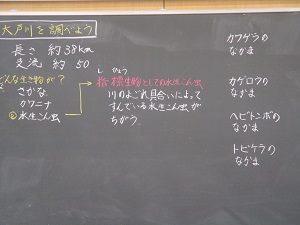 大戸川を調べよう
長さ 約38km
支流 約50
どんな生き物が?
さかな
カワニナ
②水生こん虫
し ひょう
指標生物としての水生こん虫
川のよごれ具合いによって
すんでいる水生こん虫が
ちがう。
カワゲラの
なかま
カゲロウの
なかま
ヘビトンボの
なかま
トビケラの
なかま